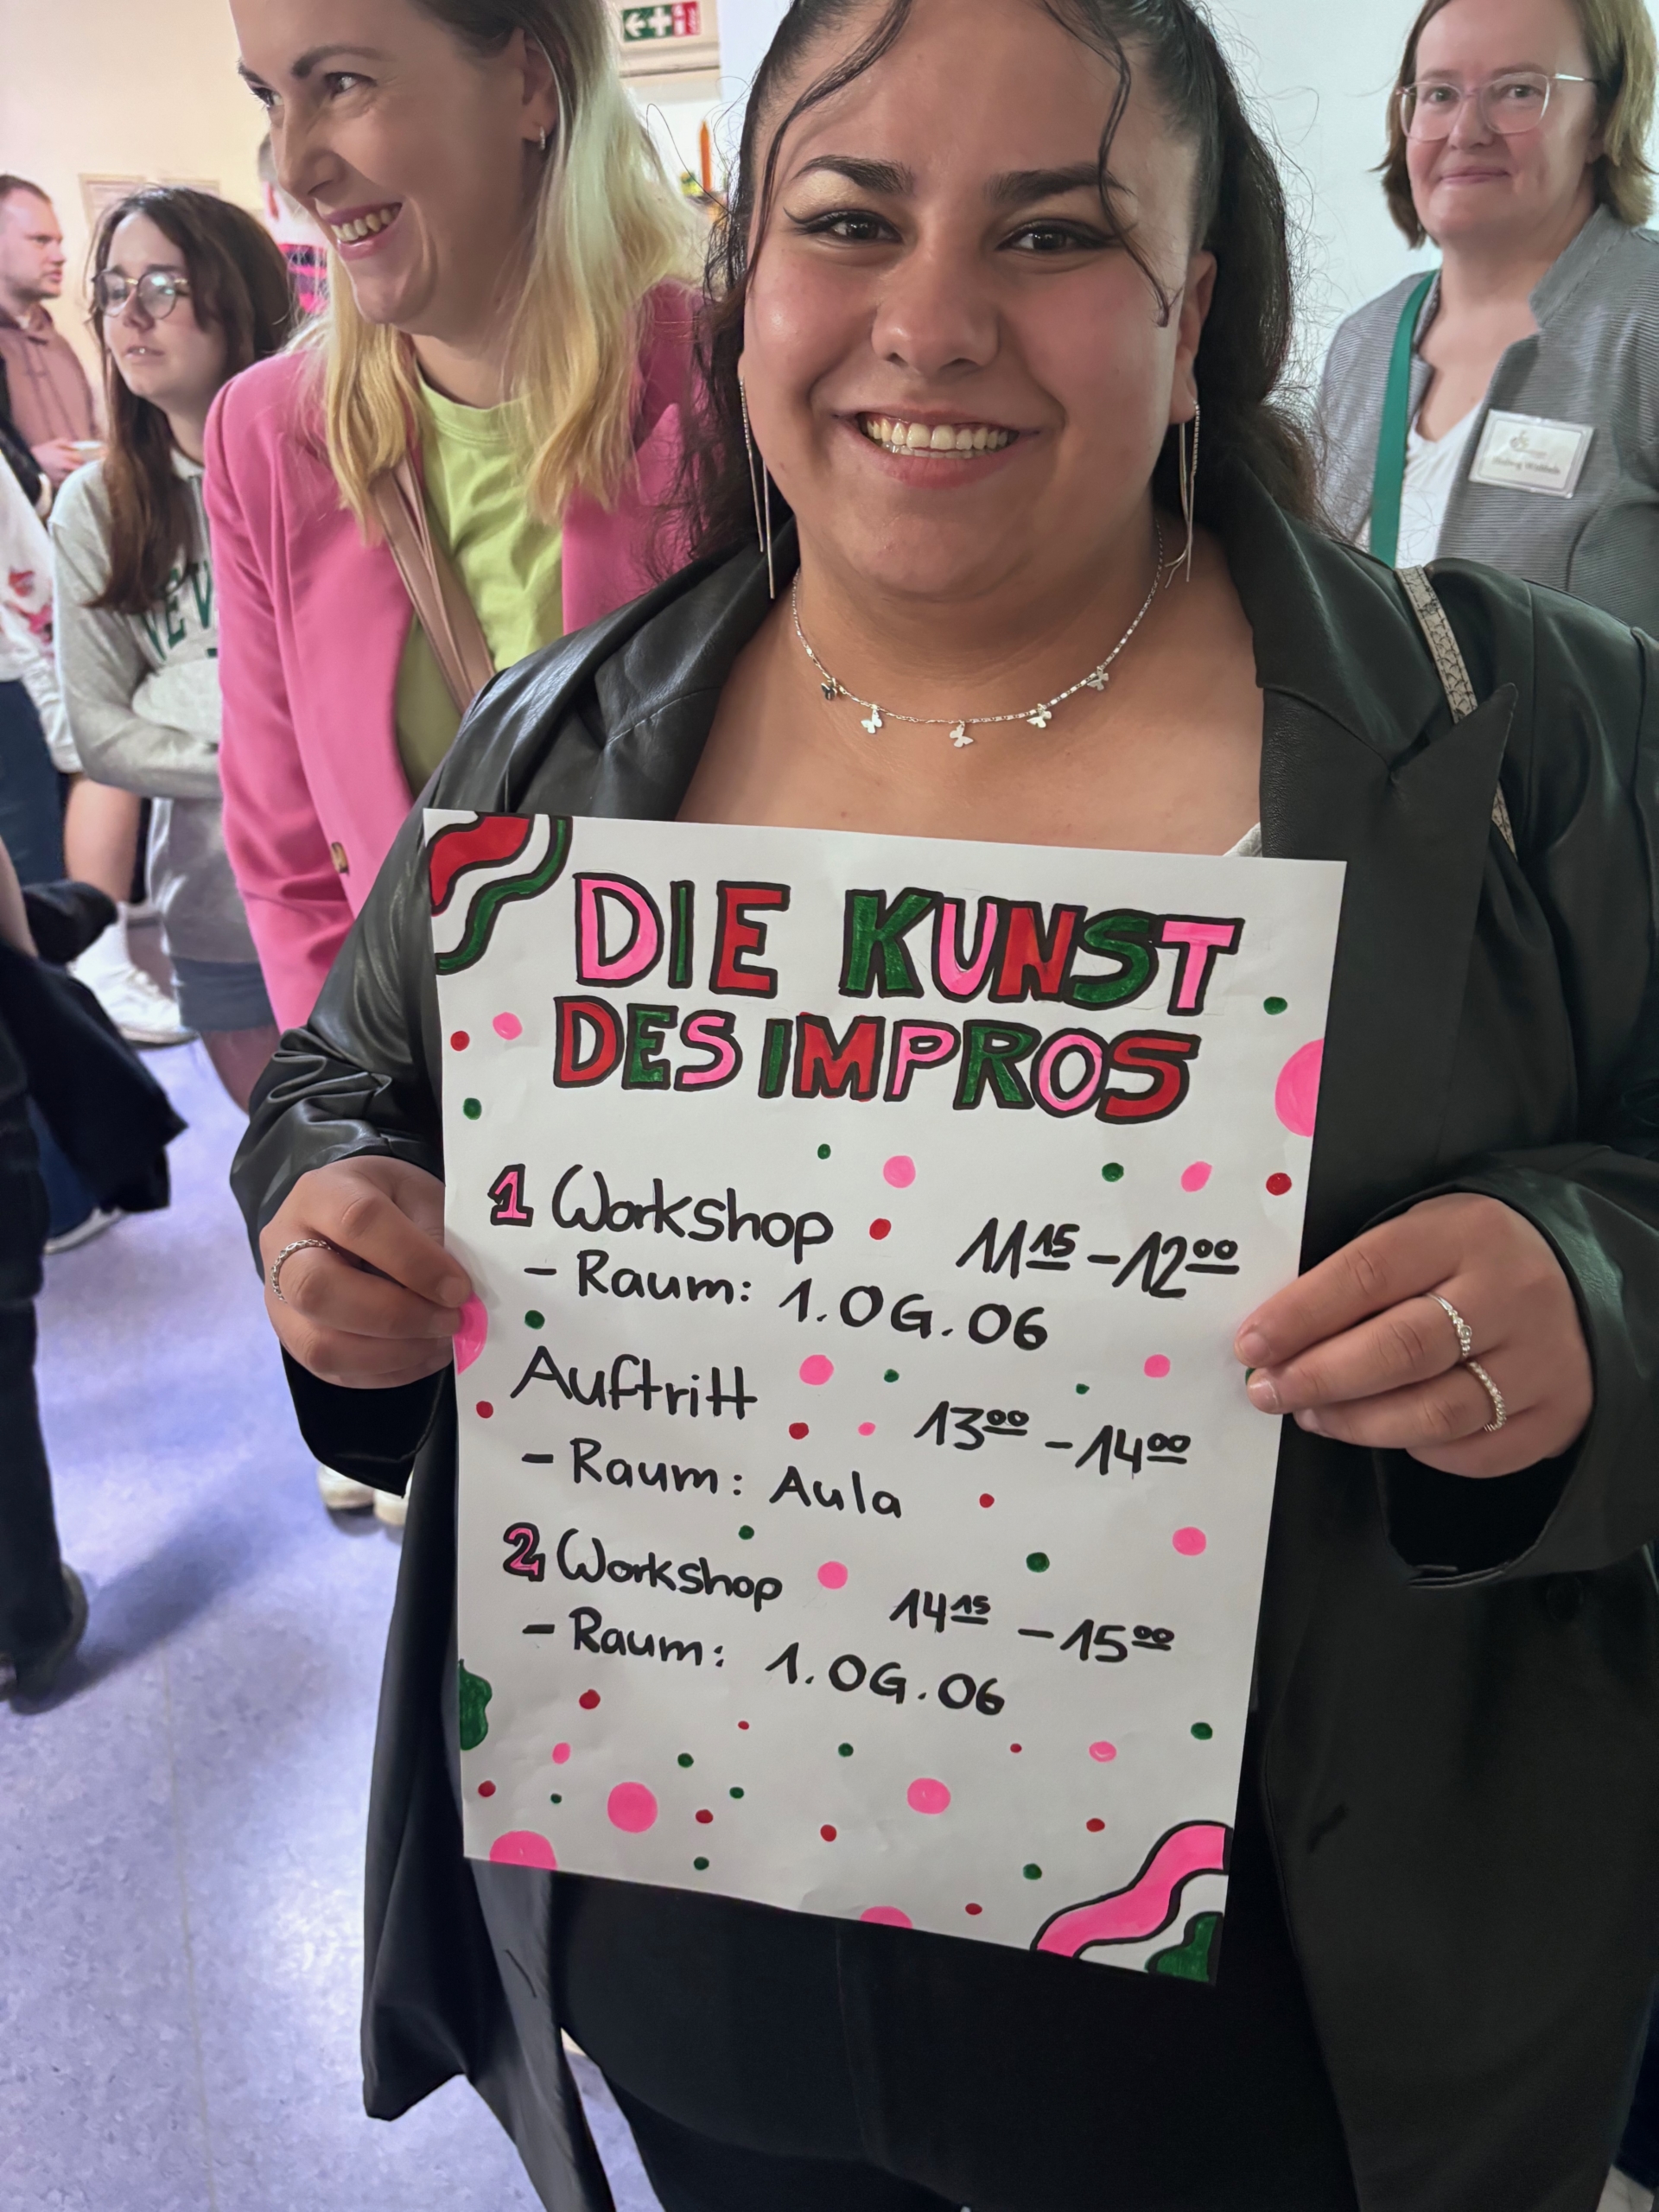 DIE KUNST
DES IMPROS
1 Workshop 11 15 - 12 00
- Raum: 1.OG.06
Auftritt 13 00 - 14 00
- Raum: Aula
2 Workshop 14 15 - 15 00
- Raum: 1.OG.06